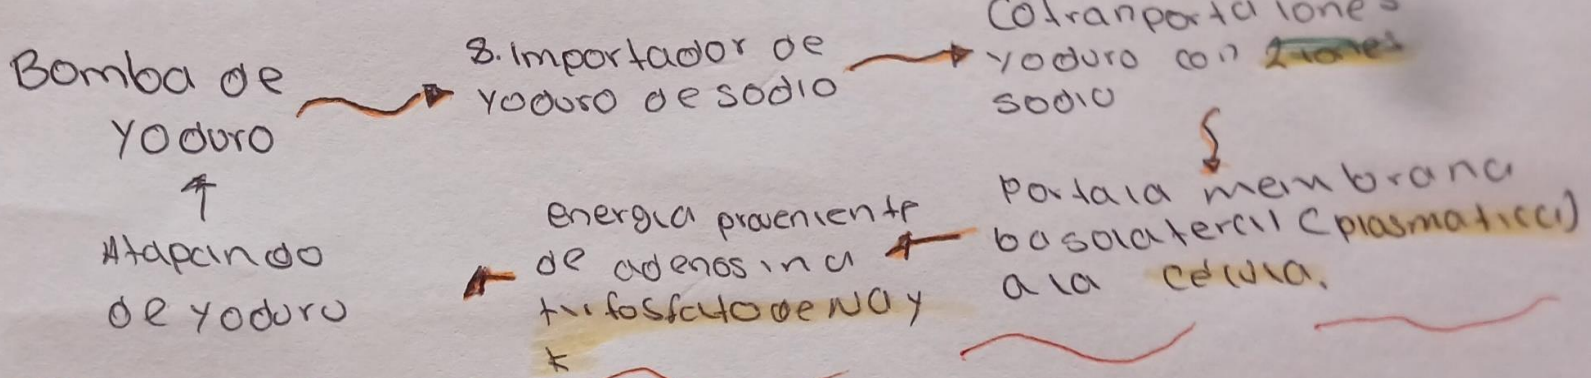 Bomba de
Yoduro
Atapando
de yoduro
8. Importador de
Yoduro de sodio
Cotranporta Iones
Yoduro con 2 iones
sodio
Por la la membrana
basolateral (plasmatica)
a la celula.
energia proveniente
de adenosina
trifosfato de Na y
k